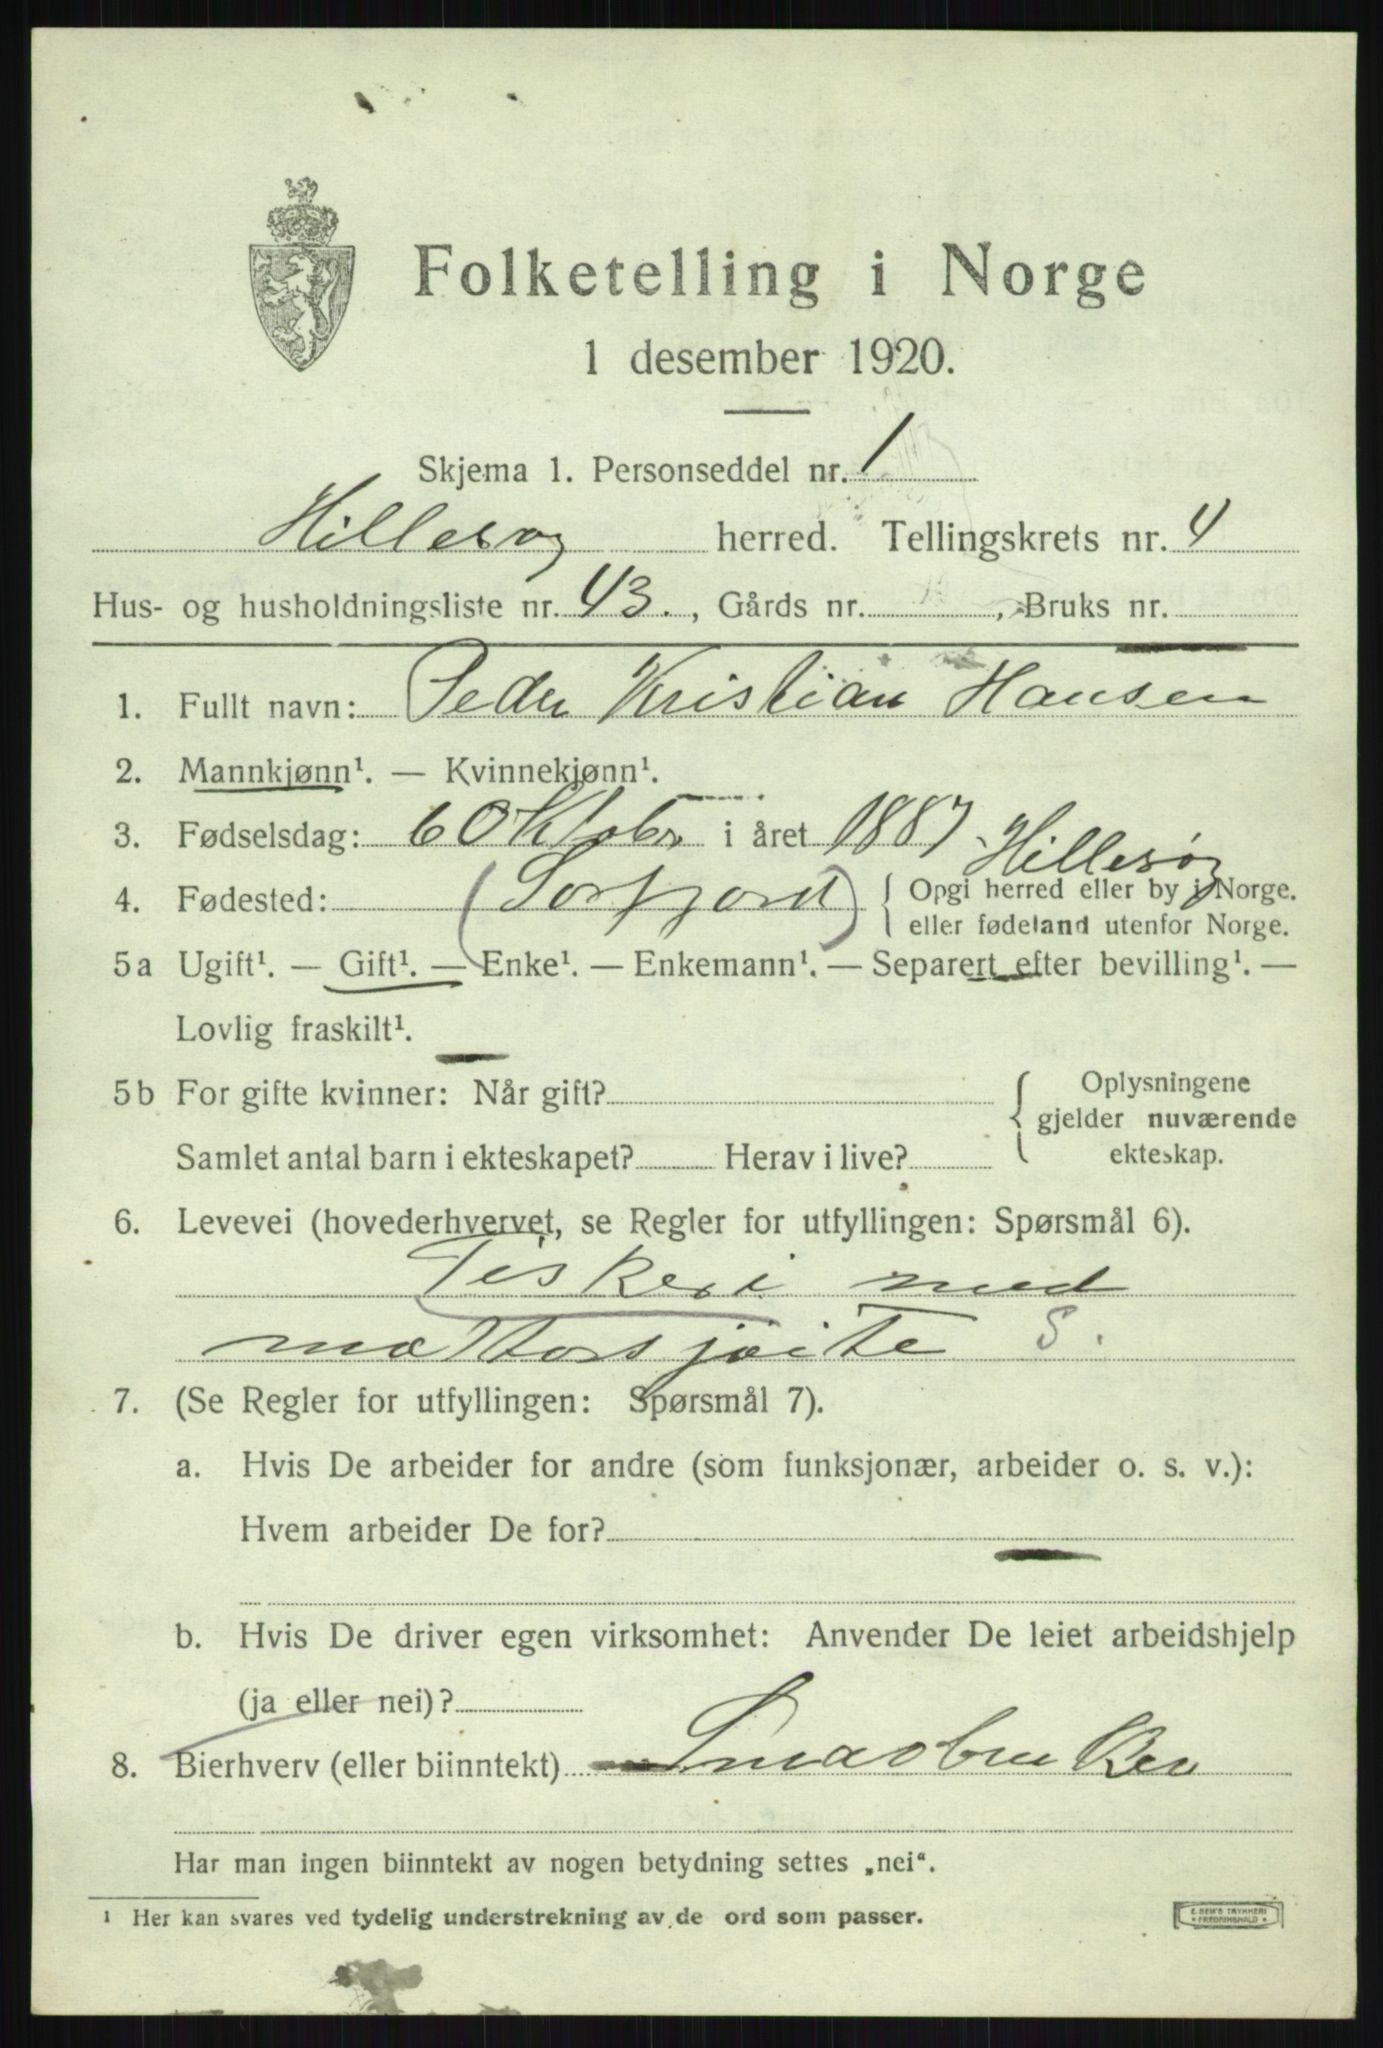 Folketelling i Norge
1 desember 1920.
Skjema 1. Personseddel nr. 1
Hillesøy herred. Tellingskrets nr. 4
Hus- og husholdningsliste nr. 43., Gårds nr. , Bruks nr.
1. Fullt navn: Peder Kristian Hansen
2. Mannkjønn¹. — Kvinnekjønn¹.
3. Fødselsdag: 6 Oktober i året 1887
Hillesøy
4. Fødested: (Sørfjord) { Opgi herred eller by i Norge.
eller fødeland utenfor Norge.
5a Ugift¹. — Gift¹. — Enke¹. — Enkemann¹. — Separert efter bevilling¹. —
Lovlig fraskilt¹.
5b For gifte kvinner: Når gift? { Oplysningene
gjelder nuværende
Samlet antal barn i ekteskapet? Herav i live? ekteskap.
6. Levevei (hovederhvervet, se Regler for utfyllingen: Spørsmål 6).
Fiskeri med
mottorsjøite S.
7. (Se Regler for utfyllingen: Spørsmål 7).
a. Hvis De arbeider for andre (som funksjonær, arbeider o. s. v.):
Hvem arbeider De for?
b. Hvis De driver egen virksomhet: Anvender De leiet arbeidshjelp
(ja eller nei)?
8. Bierhverv (eller biinntekt) Smaabruker
Har man ingen biinntekt av nogen betydning settes „nei“.
¹ Her kan svares ved tydelig understrekning av de ord som passer.
E. SEM'S TRYKKERI
FREDRIKSHALD